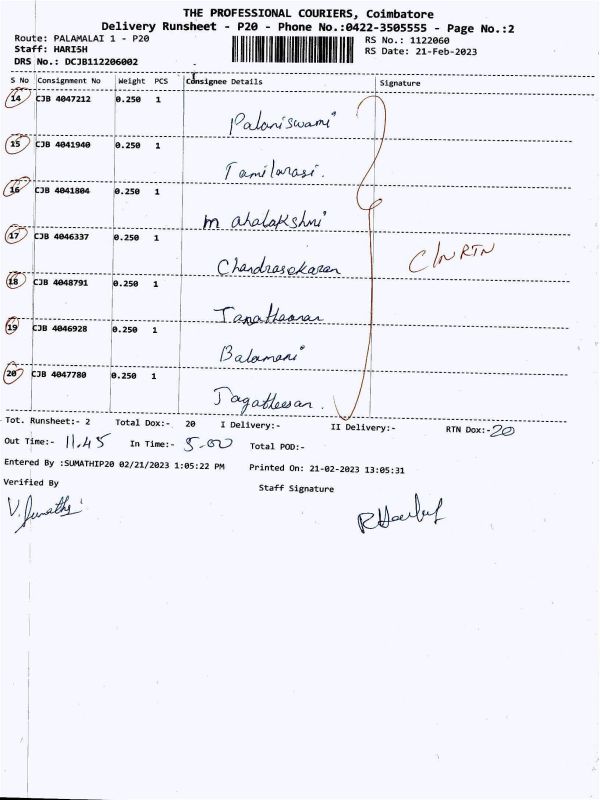 THE PROFESSIONAL COURIERS, Coimbatore
Delivery Runsheet - P20 - Phone No.:0422-3505555 - Page No.:2
Route: PALAMALAI 1 - P20 RS No.: 1122060
Staff: HARISH RS Date: 21-Feb-2023
DRS No.: DCJB112206002
S No Consignment No Weight PCS Consignee Details Signature
14 CJB 4047212 0.250 1
Palaniswami
15 CJB 4041940 0.250 1
Tamilarasi.
16 CJB 4041804 0.250 1
Mahalakshmi
17 CJB 4046337 0.250 1
C/N RTN
Chandrasekaran
18 CJB 4048791 0.250 1
19 CJB 4046928 0.250 1
Balamani
20 CJB 4047780 0.250 1
Jagatheesan.
Tot. Runsheet:- 2 Total Dox:- 20 I Delivery:- II Delivery:- RTN Dox:- 20
Out Time:- 11.45 In Time:- 5.00 Total POD:-
Entered By :SUMATHIP20 02/21/2023 1:05:22 PM Printed On: 21-02-2023 13:05:31
Verified By Staff Signature
V. Sumathi